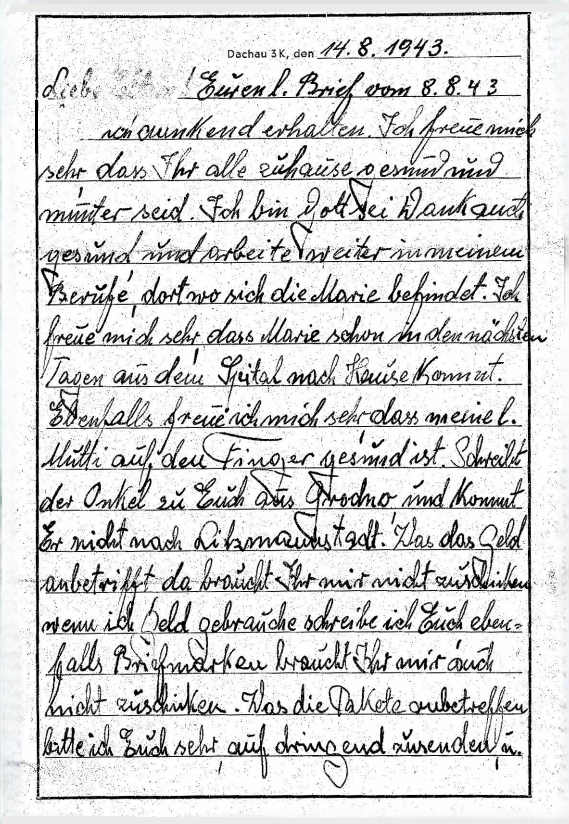 Dachau 3K, den 14. 8. 1943.
Liebe Eltern! Euren l. Brief vom 8. 8. 43
dankend erhalten. Ich freue mich
sehr dass Ihr alle zuhause gesund und
munter seid. Ich bin Gott sei Dank auch
gesund und arbeite weiter in meinem
Berufe, dort wo sich die Marie befindet. Ich
freue mich sehr, dass Marie schon in den nächsten
Tagen aus dem Spital nach Hause kommt.
Ebenfalls freue ich mich sehr dass meine l.
Mutti auf den Finger gesund ist. Schreibt
der Onkel zu Euch aus Grodno und kommt
Er nicht nach Litzmannstadt. Was das Geld
anbetrifft da braucht Ihr mir nicht zuschicken
wenn ich Geld gebrauche schreibe ich Euch eben=
falls Briefmarken braucht Ihr mir auch
nicht zuschicken. Was die Pakete anbetreffen
bitte ich Euch sehr, auf dringend zusenden, u.